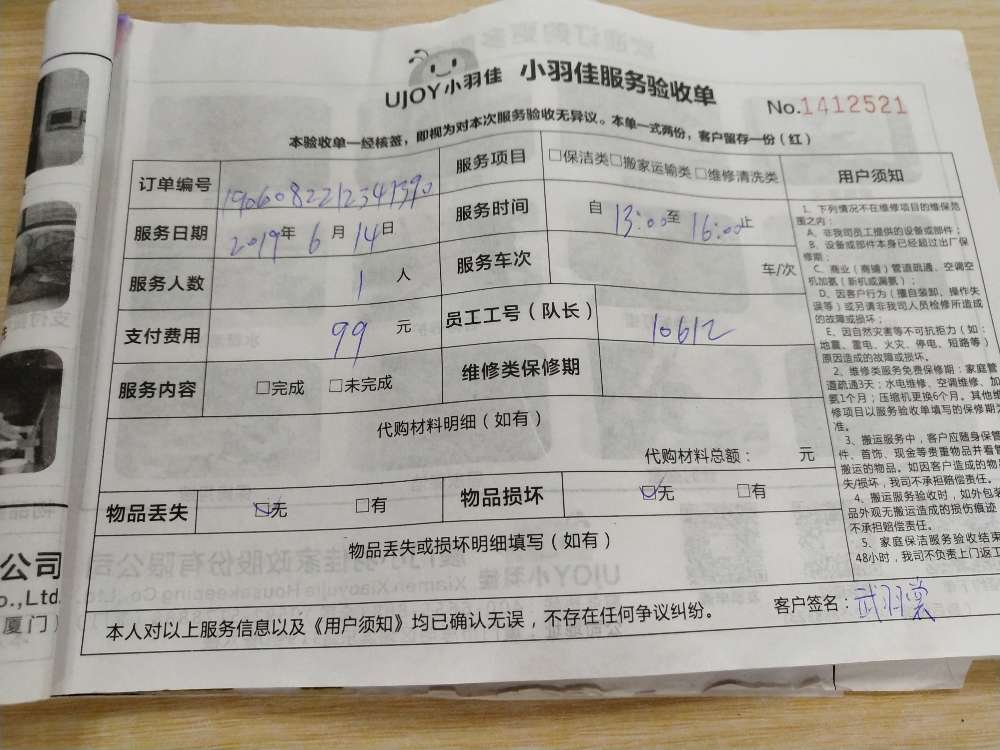 UJOY小羽佳 小羽佳服务验收单
No.1412521
本验收单一经核签，即视为对本次服务验收无异议。本单一式两份，客户留存一份（红）
订单编号 服务项目 □保洁类□搬家运输类 □维修清洗类 用户须知
服务日期 2019年 6 月 14 日 服务时间 自 13:00 至 16:00 止
服务人数 1 人 服务车次 车/次
支付费用 99 元 员工工号（队长） 10612
服务内容 □完成 □未完成 维修类保修期
代购材料明细（如有）
代购材料总额： 元
物品丢失 ☑无 □有 物品损坏 ☑无 □有
物品丢失或损坏明细填写（如有）
本人对以上服务信息以及《用户须知》均已确认无误，不存在任何争议纠纷。 客户签名：武羽裳
1、下列情况不在维修项目的维保范
围之内：
A、非我司员工提供的设备或部件；
B、设备或部件本身已经超过出厂保
修期；
C、商业（商铺）管道疏通、空调空
机加氨（新机或漏氨）；
D、因客户行为（擅自装卸、操作失
误等）或另请非我司人员检修所造成
的故障或损坏；
E、因自然灾害等不可抗拒力（如：
地震、雷电、火灾、停电、短路等）
原因造成的故障或损坏。
2、维修类服务免费保修期：家庭管
道疏通3天；水电维修、空调维修、加
氨1个月；压缩机更换6个月。其他维
修项目以服务验收单填写的保修期为
准。
3、搬运服务中，客户应随身保管
件、首饰、现金等贵重物品并看管
搬运的物品。如因客户造成的物
失/损坏，我司不承担赔偿责任。
4、搬运服务验收时，如外包装
品外观无搬运造成的损伤痕迹
不承担赔偿责任。
5、家庭保洁服务验收结束
48小时，我司不负责上门返工
公司
o.,Ltd
厦门）